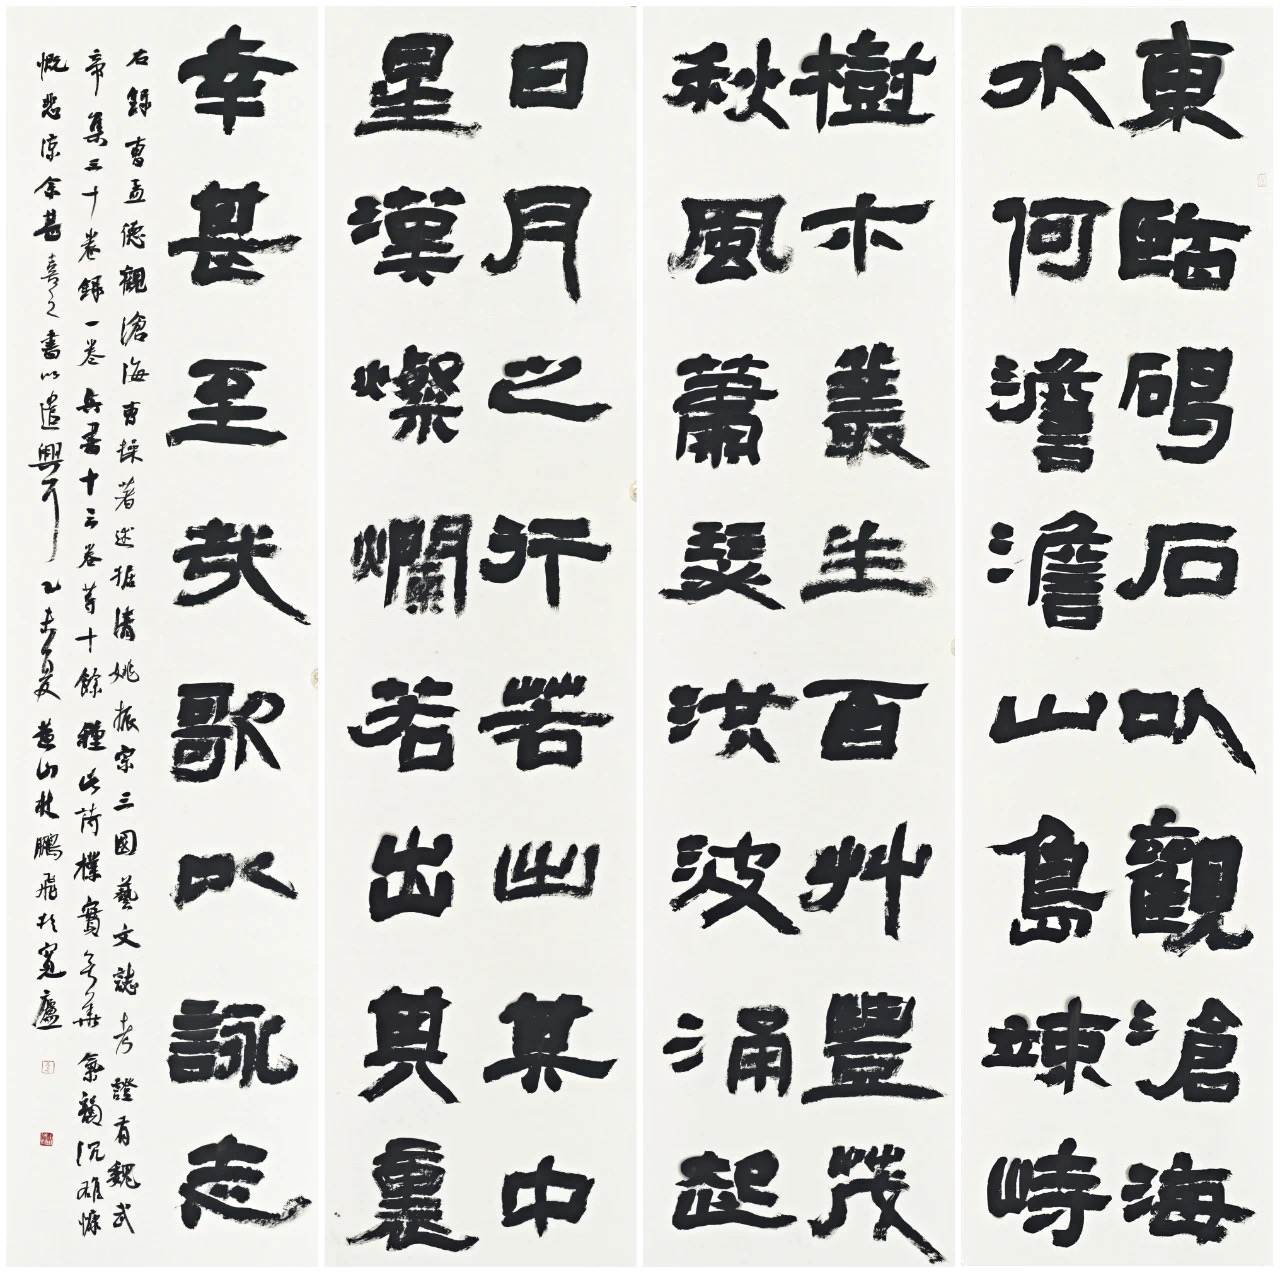 東臨碣石以觀滄海
水何澹澹山島竦峙
樹木叢生百艸豐茂
秋風蕭瑟洪波涌起
日月之行若出其中
星漢燦爛若出其裏
幸甚至哉歌以詠志
右録曹孟德觀滄海曹操著述據清姚振宗三國藝文誌考證有魏武
帝集三十卷録一卷兵書十三卷等十餘種此詩樸實無華氣韻沉雄慷
慨悲涼余甚喜之書以遣興耳乙未夏黄山杜鵬飛於寬廬